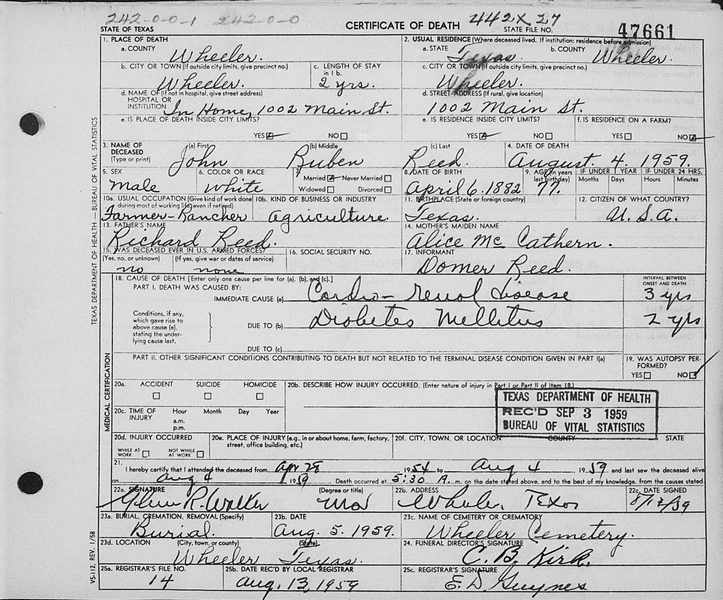 242-0-0-1 242-0-0
CERTIFICATE OF DEATH 442X 27
STATE OF TEXAS STATE FILE NO. 47661
1. PLACE OF DEATH
a. COUNTY Wheeler
2. USUAL RESIDENCE (Where deceased lived. If institution: residence before admission)
a. STATE Texas b. COUNTY Wheeler
b. CITY OR TOWN (If outside city limits, give precinct no.) Wheeler
c. LENGTH OF STAY in 1 b. 2 yrs.
c. CITY OR TOWN (If outside city limits, give precinct no.) Wheeler.
d. NAME OF (If not in hospital, give street address) HOSPITAL OR INSTITUTION In Home, 1002 Main St.
d. STREET ADDRESS (If rural, give location) 1002 Main St.
e. IS PLACE OF DEATH INSIDE CITY LIMITS? YES NO
e. IS RESIDENCE INSIDE CITY LIMITS? YES NO
f. IS RESIDENCE ON A FARM? YES NO
3. NAME OF DECEASED (Type or print)
(a) First John
(b) Middle Ruben
(c) Last Reed.
4. DATE OF DEATH August. 4. 1959.
5. SEX male
6. COLOR OR RACE white
7. Married Never Married
Widowed Divorced
8. DATE OF BIRTH April 6. 1882
9. AGE (In years last birthday) 77.
IF UNDER 1 YEAR Months Days
IF UNDER 24 HRS. Hours Min.
10a. USUAL OCCUPATION (Give kind of work done during most of working life, even if retired) Farmer-Rancher
10b. KIND OF BUSINESS OR INDUSTRY Agriculture
11. BIRTHPLACE (State or foreign country) Texas.
12. CITIZEN OF WHAT COUNTRY? U.S.A.
13. FATHER'S NAME Richard Reed.
14. MOTHER'S MAIDEN NAME Alice Mc Cathern.
15. WAS DECEASED EVER IN U.S. ARMED FORCES?
(Yes, no, or unknown) (If yes, give war or dates of service)
no none
16. SOCIAL SECURITY NO.
17. INFORMANT Domer Reed.
18. CAUSE OF DEATH [Enter only one cause per line for (a), (b), and (c).]
INTERVAL BETWEEN ONSET AND DEATH
PART I. DEATH WAS CAUSED BY:
IMMEDIATE CAUSE (a) Cardio-Renal Disease 3 yrs
Conditions, if any, which gave rise to above cause (a), stating the underlying cause last.
DUE TO (b) Diabetes Mellitus 2 yrs
DUE TO (c)
PART II. OTHER SIGNIFICANT CONDITIONS CONTRIBUTING TO DEATH BUT NOT RELATED TO THE TERMINAL DISEASE CONDITION GIVEN IN PART I(a)
19. WAS AUTOPSY PERFORMED? YES NO
20a. ACCIDENT SUICIDE HOMICIDE
20b. DESCRIBE HOW INJURY OCCURRED. (Enter nature of injury in Part I or Part II of item 18.)
20c. TIME OF INJURY Hour Month Day Year
a.m.
p.m.
TEXAS DEPARTMENT OF HEALTH
REC'D SEP 3 1959
BUREAU OF VITAL STATISTICS
20d. INJURY OCCURRED
WHILE AT WORK NOT WHILE AT WORK
20e. PLACE OF INJURY (e.g., in or about home, farm, factory, street, office building, etc.)
20f. CITY, TOWN, OR LOCATION COUNTY STATE
21. I hereby certify that I attended the deceased from Apr 28 1954 to Aug 4 1959 and last saw the deceased alive
on Aug 4 1959 Death occurred at 5:30 A.m. on the date stated above, and to the best of my knowledge, from the causes stated
22a. SIGNATURE (Degree or title) Glenn R. Walker MD
22b. ADDRESS Wheeler, Texas
22c. DATE SIGNED 8/12/59
23a. BURIAL, CREMATION, REMOVAL (Specify) Burial.
23b. DATE Aug. 5. 1959.
23c. NAME OF CEMETERY OR CREMATORY Wheeler Cemetery.
23d. LOCATION (City, town, or county) (State) Wheeler Texas.
24. FUNERAL DIRECTOR'S SIGNATURE C. B. Kirk.
25a. REGISTRAR'S FILE NO. 14
25b. DATE REC'D BY LOCAL REGISTRAR Aug. 13, 1959
25c. REGISTRAR'S SIGNATURE E. D. Guynes
TEXAS DEPARTMENT OF HEALTH — BUREAU OF VITAL STATISTICS
MEDICAL CERTIFICATION
VS-112, REV. 1/58